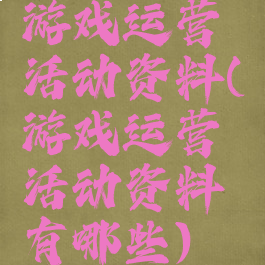 游戏运营
活动资料(
游戏运营
活动资料
有哪些)